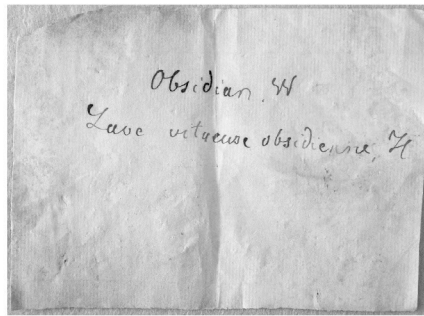 Obsidian. W
Lave vitreuse obsidienne, H